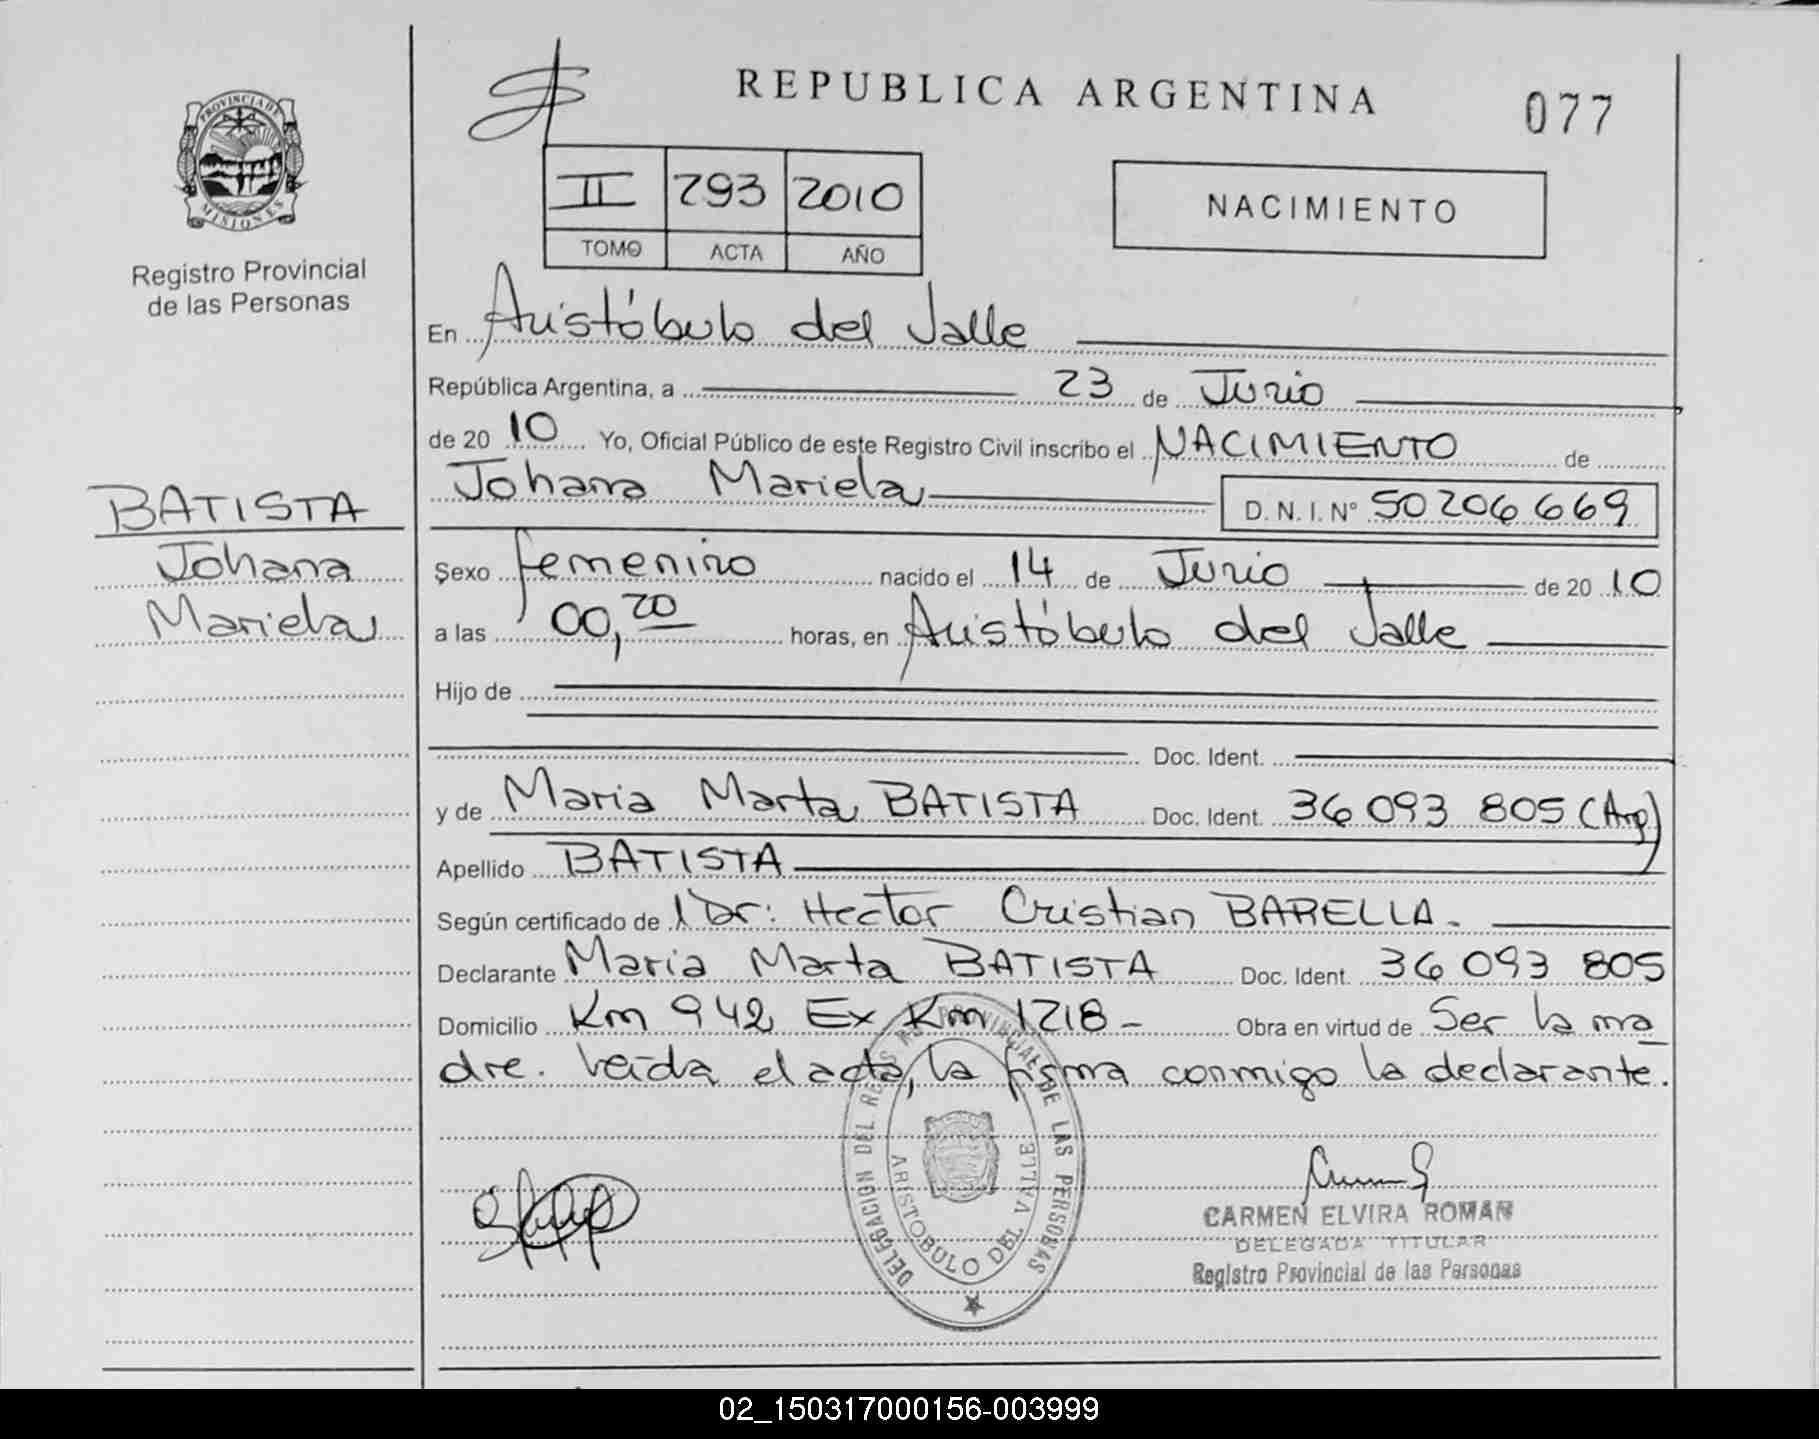 REPUBLICA ARGENTINA
077
PROVINCIA DE
MISIONES
Registro Provincial
de las Personas
II 293 2010
TOMO ACTA AÑO
NACIMIENTO
En Aristóbulo del Valle
República Argentina, a 23 de Junio
de 20 10 Yo, Oficial Público de este Registro Civil inscribo el NACIMIENTO de
Johana Mariela D.N.I. N° 50 206 669
BATISTA
Johana
Mariela
Sexo femenino nacido el 14 de Junio de 20 10
a las 00,20 horas, en Aristóbulo del Valle
Hijo de
Doc. Ident.
y de Maria Marta BATISTA Doc. Ident. 36 093 805 (Arg)
Apellido BATISTA
Según certificado de Dr: Hector Cristian BARELLA.
Declarante Maria Marta BATISTA Doc. Ident. 36 093 805
Domicilio Km 942 Ex Km 1218 - Obra en virtud de Ser la ma
dre. Leída el acta, la firma conmigo la declarante.
DELEGACION DEL REG. PROVINCIAL DE LAS PERSONAS
ARISTOBULO DEL VALLE
CARMEN ELVIRA ROMAN
DELEGADA TITULAR
Registro Provincial de las Personas
02_150317000156-003999